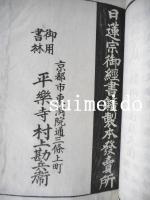 日蓮宗御經書籍製本發賣所
京都市東洞院通三條上町
御用
書林
平樂寺村上勘兵衛
suimeido